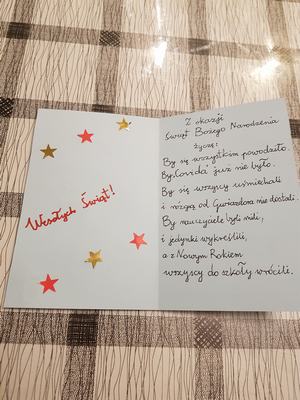 Wesołych Świąt!
Z okazji
Świąt Bożego Narodzenia
życzę:
By się wszystkim powodziło.
By "Covida" już nie było.
By się wszyscy uśmiechali
i rózgą od Gwiazdora nie dostali.
By nauczyciele byli mili,
i jedynki wykreślili,
a z Nowym Rokiem
wszyscy do szkoły wrócili.